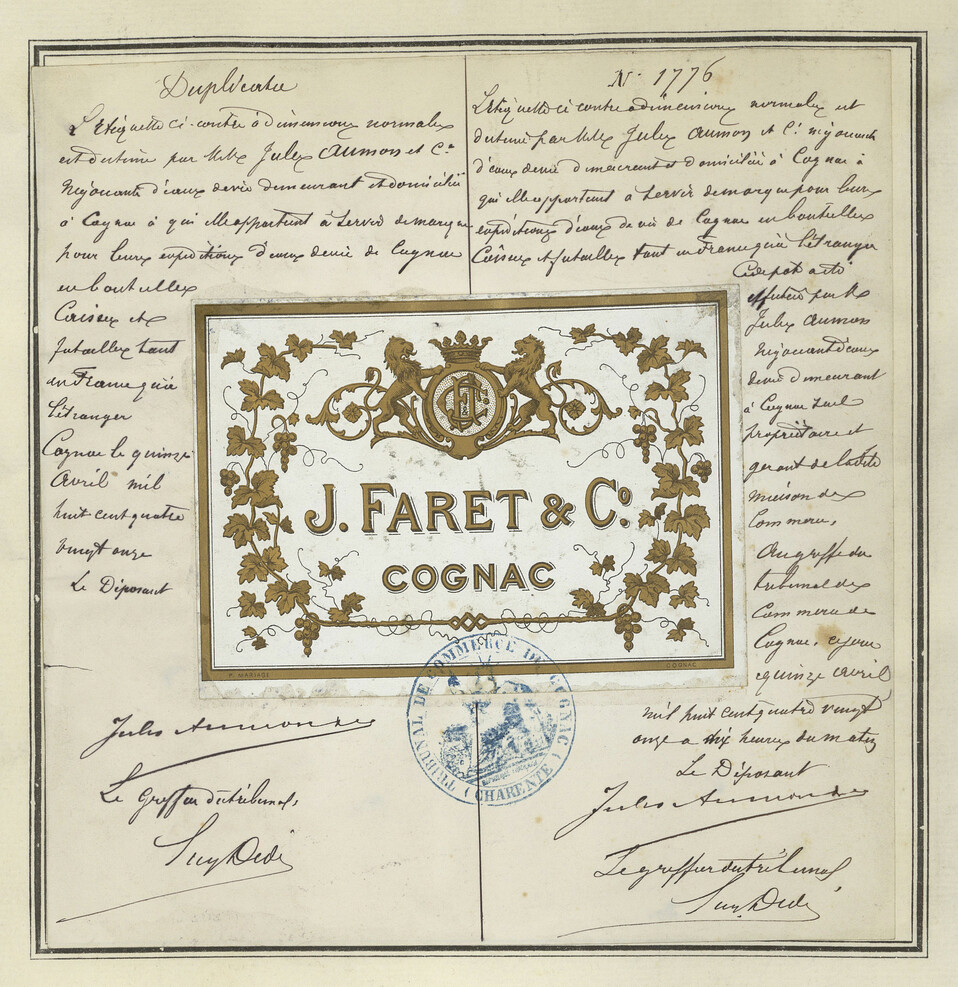 Duplicata
L'étiquette ci-contre à dimensions normales
est destinée par M.M. Jules Aumon et Cie
négociants d'eaux de vie demeurant et domiciliés
à Cognac à qui elle appartient à servir de marque
pour leurs expéditions d'eaux de vie de Cognac
en bouteilles
Caisses et
futailles tant
en France qu'à
l'étranger
Cognac le quinze
Avril mil
huit cent quatre
vingt onze
Le Déposant
Jules Aumon
Le Greffier du tribunal,
N° 1776
L'étiquette ci contre à dimensions normales est
destinée par M.M. Jules Aumon et Cie négociants
d'eaux de vie demeurant et domiciliés à Cognac à
qui elle appartient à servir de marque pour leurs
expéditions d'eaux de vie de Cognac en bouteilles
Caisses et futailles tant en France qu'à l'étranger
Ce dépôt a été
effectué par M.
Jules Aumon
négociant d'eaux
de vie demeurant
à Cognac seul
propriétaire et
gérant de la dite
maison de
Commerce,
Au greffe du
tribunal de
Commerce de
Cognac, ce jour
quinze Avril
mil huit cent quatre vingt
onze a dix heures du matin
Le Déposant
Jules Aumon
Le greffier du tribunal
J. FARET & Co.
COGNAC
P. MARIAGE
COGNAC
TRIBUNAL DE COMMERCE DE COGNAC
(CHARENTE)